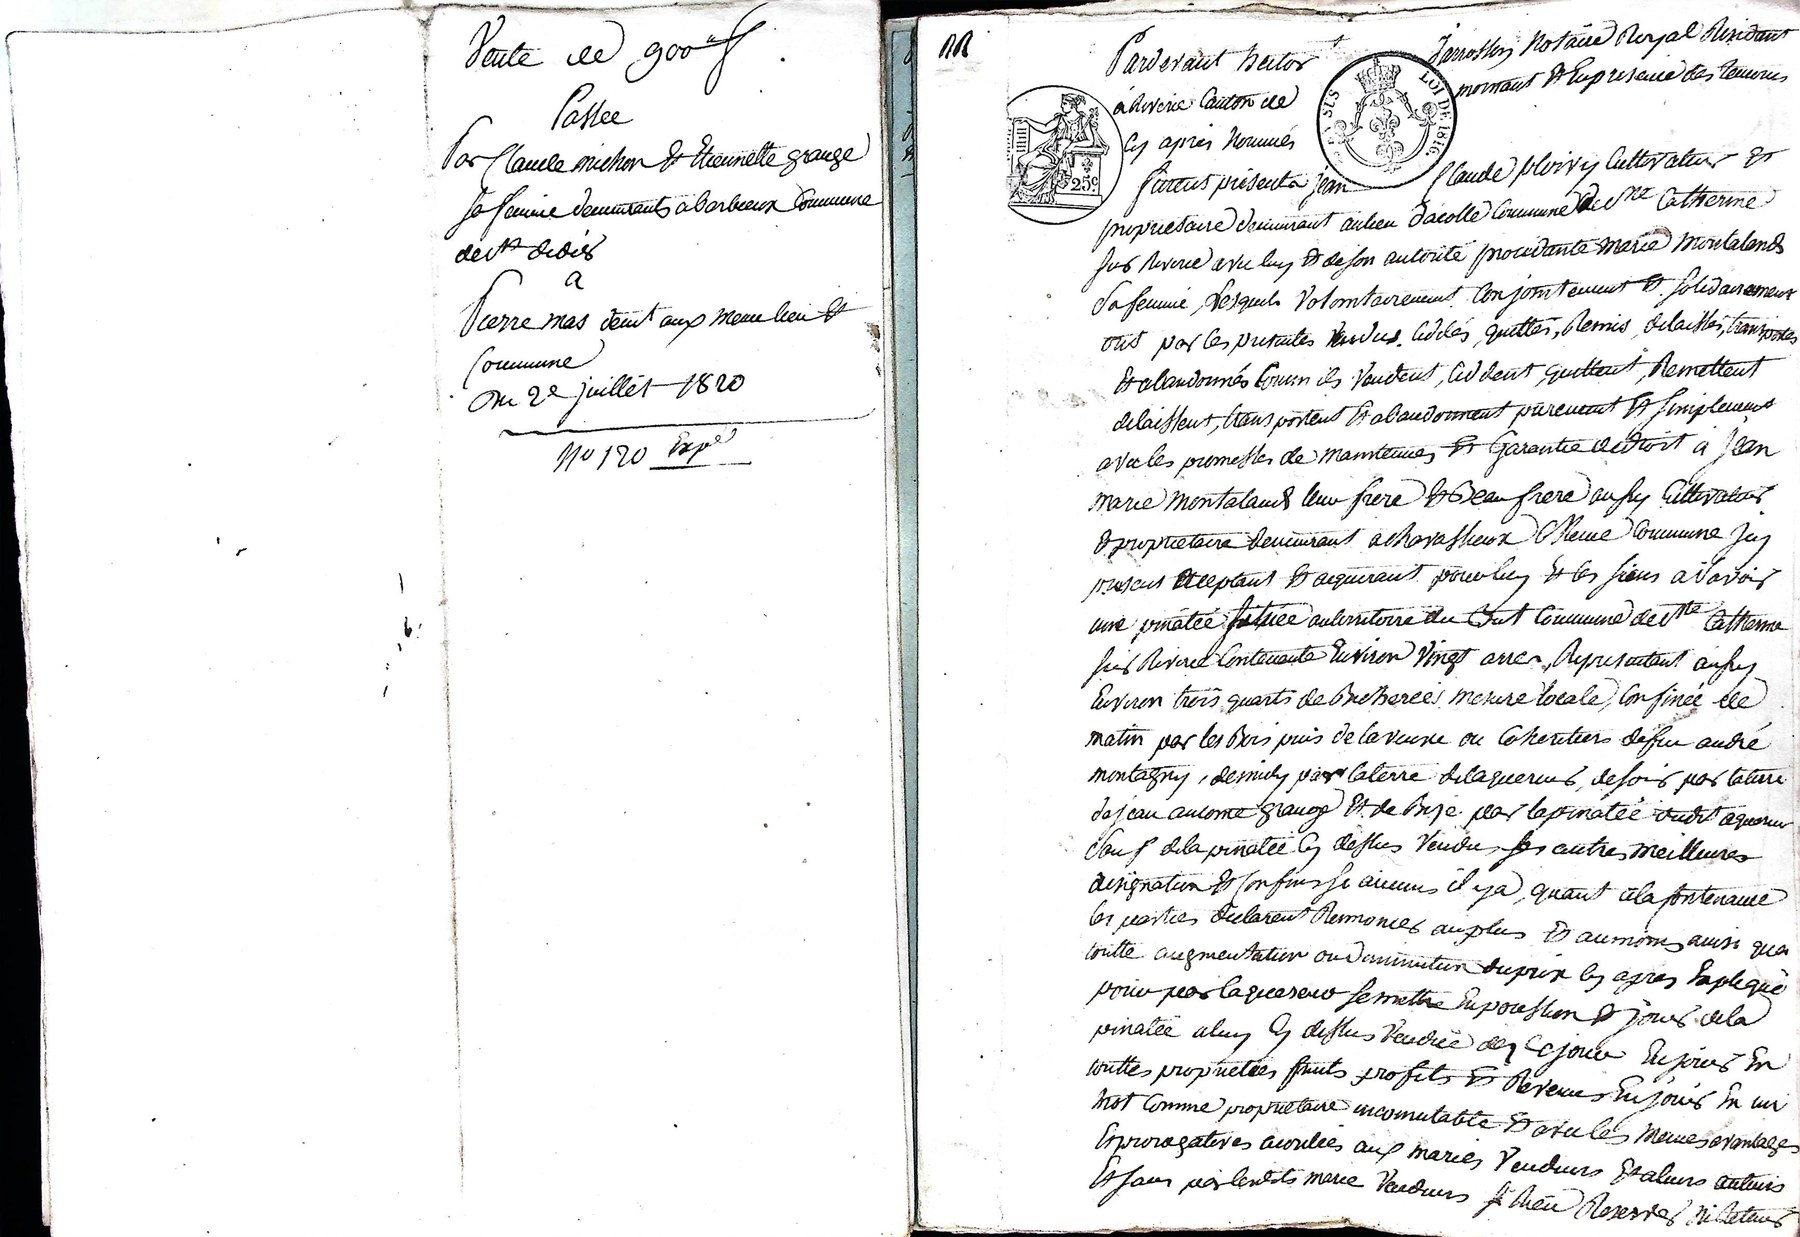 Vente de 900 f
Passée
Par Claude michon et Etiennette grange
sa femme demeurants a barbieux Commune
de st didier
a
Pierre mas demt aux meme lieu et
Commune
Du 2e juillet 1820
No 120 Expé
Pardevant hector Jarrosson Notaire Royal Résidant
à Riverie Canton de mornant et En présence des temoins
Cy après Nommés
furent présents jean Claude ploivy Cultivateur et
propriétaire demeurant au lieu d'acolle Commune de Ste Catherine
sur Riverie avec luy et de son autorité procédante marie montaland
sa femme, Lesquels volontairement Conjointement et solidairement
ont par les présentes vendus, Cédés, quittés, Remis, délaissés, transportés
et abandonnés Comm ils vendent, Cèdent, quittent, Remettent
délaissent, transportent et abandonnent purement et simplement
avec les promesses de maintenues et Garantie de droit à jean
marie montaland leur frere et Beau frere aussy Cultivateur
et propriétaire demeurant a chavassieux Meme Commune Icy
present acceptant et acquerant pour luy et les siens a savoir
une pinatée située au territoire du Commune de Ste Catherine
sur Riverie Contenante Environ vingt arres, Représentant aussy
Environ trois quarts de Bicherées mesure locale, Confinée de
matin par les Bois puis de la veuve ou Coheritiers de feu andré
montagny, de midy par la terre de laquereur, de soir par la terre
de jean antoine grange et de Bize par la pinatée dudt aquereur
Sauf de la pinatée Cy dessus vendue ses autres meilleures
designation et Confins si aucuns il y a, quant à la Contenance
les parties déclarent Renoncer au plus et au moins ainsi qua
toutte augmentation ou diminution du prix Cy apres Expliqué
pour par laquereur se mettre En possession et jouir de la
pinatée a luy Cy dessus vendue dez Ce jour En jouir En
touttes propriétées fruits profits et Revenus En jouir En un
mot Comme propriétaire incomutable et avec les memes avantages
Et prorogatives accordées aux mariés vendeurs Et a leurs auteurs
Et sans par lesdits marié vendeurs Rien Reserver ni Retenir
25c.
LOI DE 1816